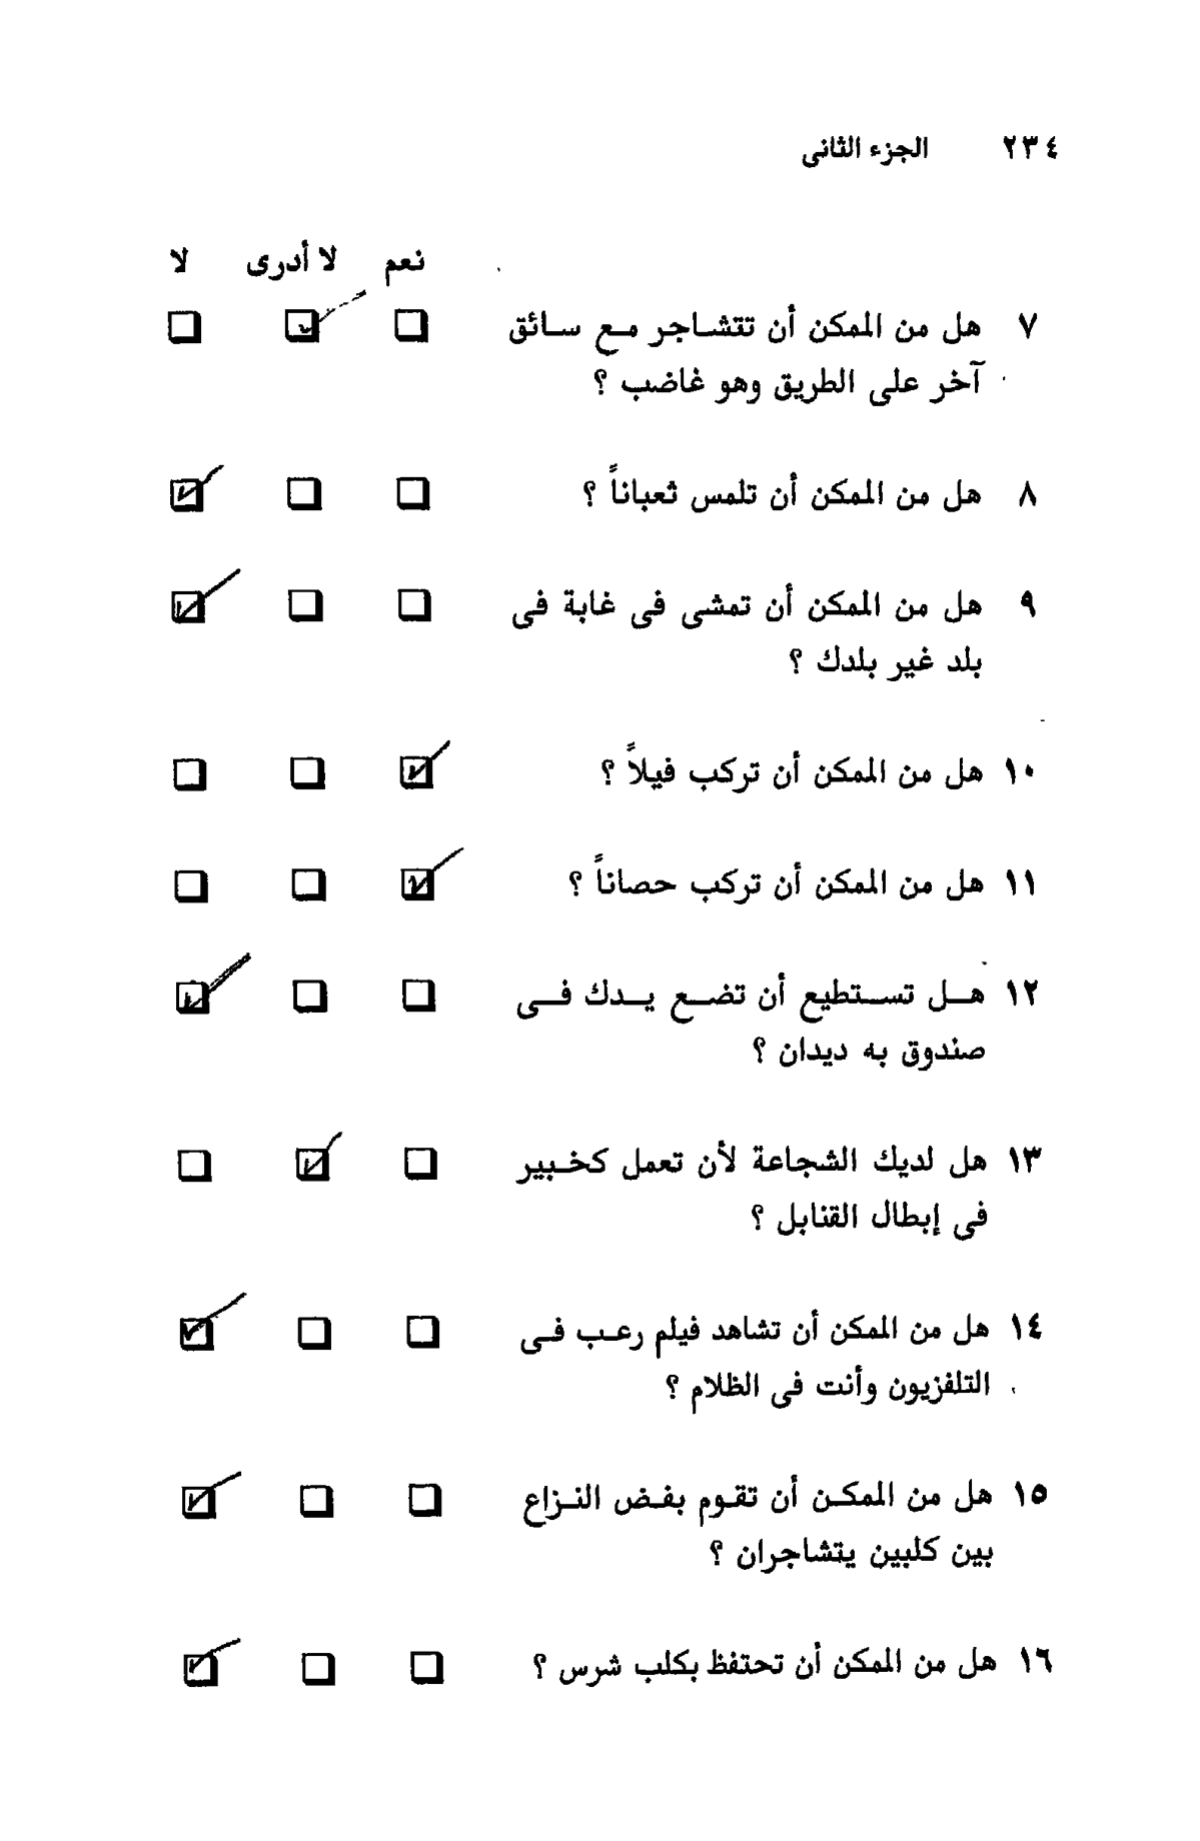 ٢٣٤ الجزء الثانى
نعم لا أدرى لا
٧ هل من الممكن أن تتشاجر مع سائق
آخر على الطريق وهو غاضب ؟
٨ هل من الممكن أن تلمس ثعباناً ؟
٩ هل من الممكن أن تمشى فى غابة فى
بلد غير بلدك ؟
١٠ هل من الممكن أن تركب فيلاً ؟
١١ هل من الممكن أن تركب حصاناً ؟
١٢ هل تستطيع أن تضع يدك فى
صندوق به ديدان ؟
١٣ هل لديك الشجاعة لأن تعمل كخبير
فى إبطال القنابل ؟
١٤ هل من الممكن أن تشاهد فيلم رعب فى
التلفزيون وأنت فى الظلام ؟
١٥ هل من الممكن أن تقوم بفض النزاع
بين كلبين يتشاجران ؟
١٦ هل من الممكن أن تحتفظ بكلب شرس ؟